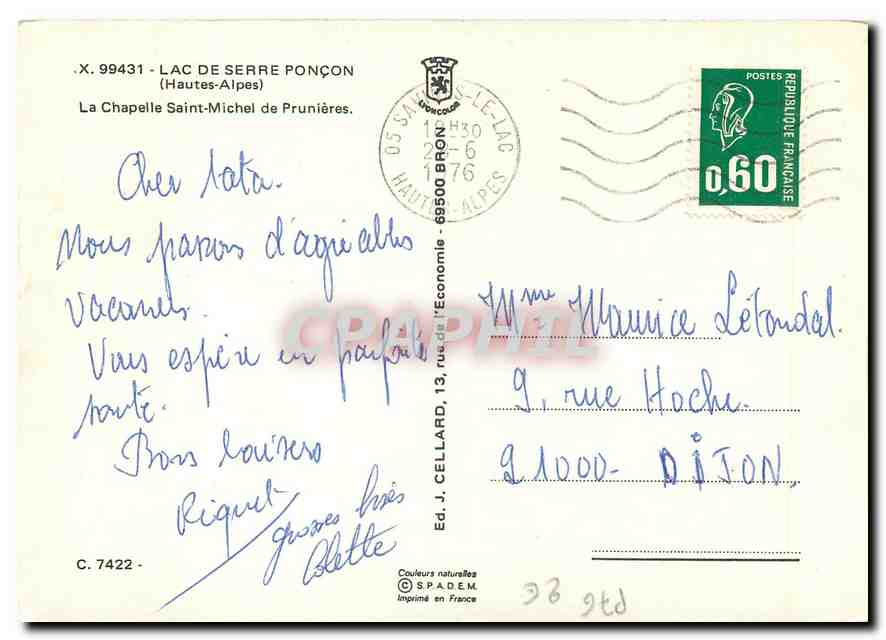 X. 99431 - LAC DE SERRE PONÇON
(Hautes-Alpes)
La Chapelle Saint-Michel de Prunières.
Cher tata.
Nous passons d'agréables
vacances.
Vous espère en parfaite
santé.
Bons baisers
Riquet
grosses bises
Colette
C. 7422 -
LYONCOLOR
05 LE-LAC
18H30
-6
1976
HAUTES-ALPES
Ed. J. CELLARD, 13, rue de l'Economie - 69500 BRON
Couleurs naturelles
© S.P.A.D.E.M.
Imprimé en France
POSTES
REPUBLIQUE FRANÇAISE
0,60
CPAPHIL
Mme Maurice Létondal.
9, rue Hoche.
21000 - DIJON.